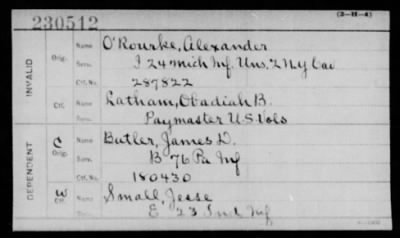 230512
(3-H-4)
INVALID
Orig. Name O'Rourke, Alexander
Serv. I 24 Mich Inf. Uns. 2 N.Y. Cav
Ctf. No. 287822
Ctf. Name Latham, Obadiah B.
Serv. Paymaster U.S. Vols
DEPENDENT
C Orig. Name Butler, James D.
Serv. B 76 Pa Inf
Ctf. No. 180430
W Ctf. Name Small, Jesse
Serv. E, 23 Ind Inf